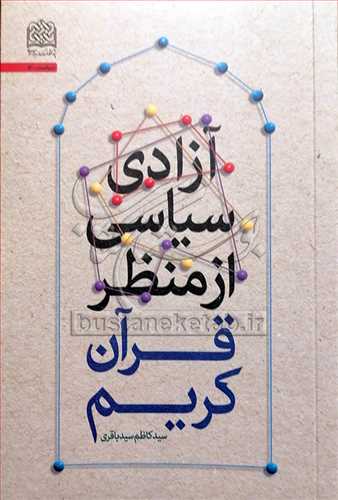 آزادی
سیاسی
از منظر
قرآن
کریم
سیدکاظم سیدباقری
bustaneketab.ir